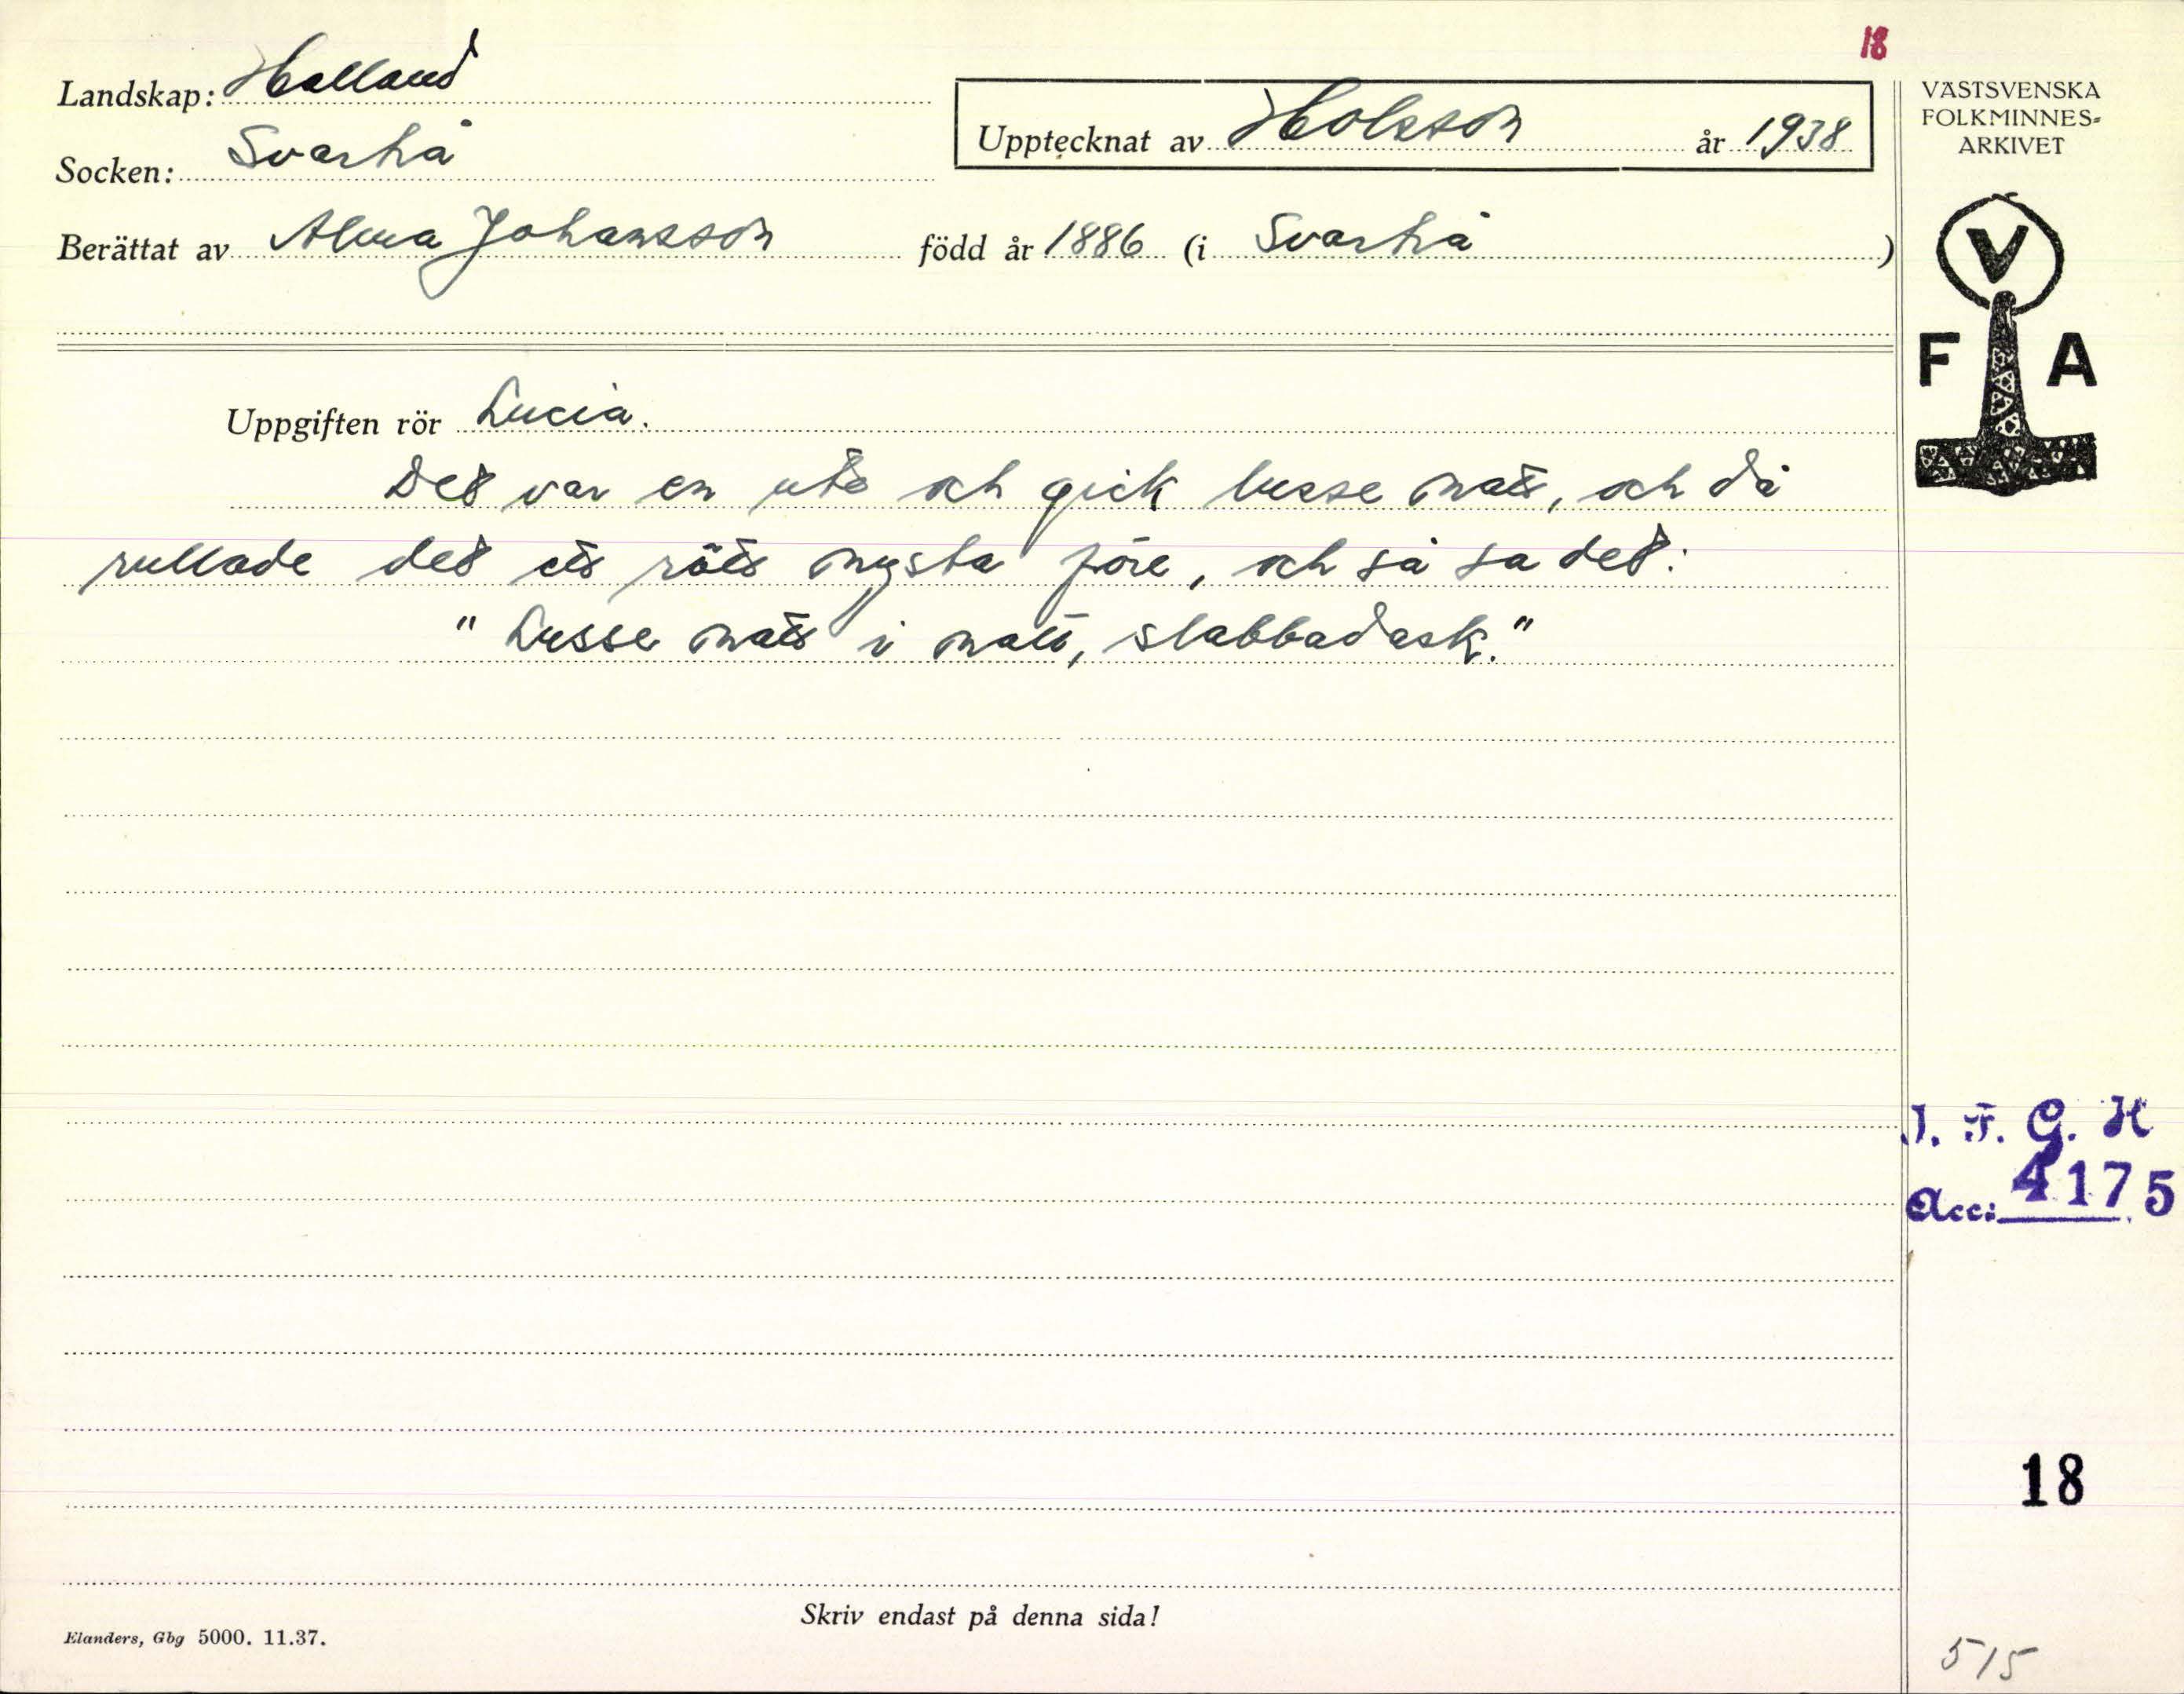 18
Landskap: Halland
Socken: Svartrå
Upptecknat av Holsson år 1938
Berättat av Alma Johansson född år 1886 (i Svartrå)
VÄSTSVENSKA
FOLKMINNES-
ARKIVET
V
F A
Uppgiften rör Lucia.
Det var en ute och gick lusse natt, och då
rullade det ett rött nysta före, och så sa det:
"Lusse natt i natt, slabbadask."
I. F. G. H
Acc: 4175
18
Skriv endast på denna sida!
Elanders, Gbg 5000. 11.37.
515